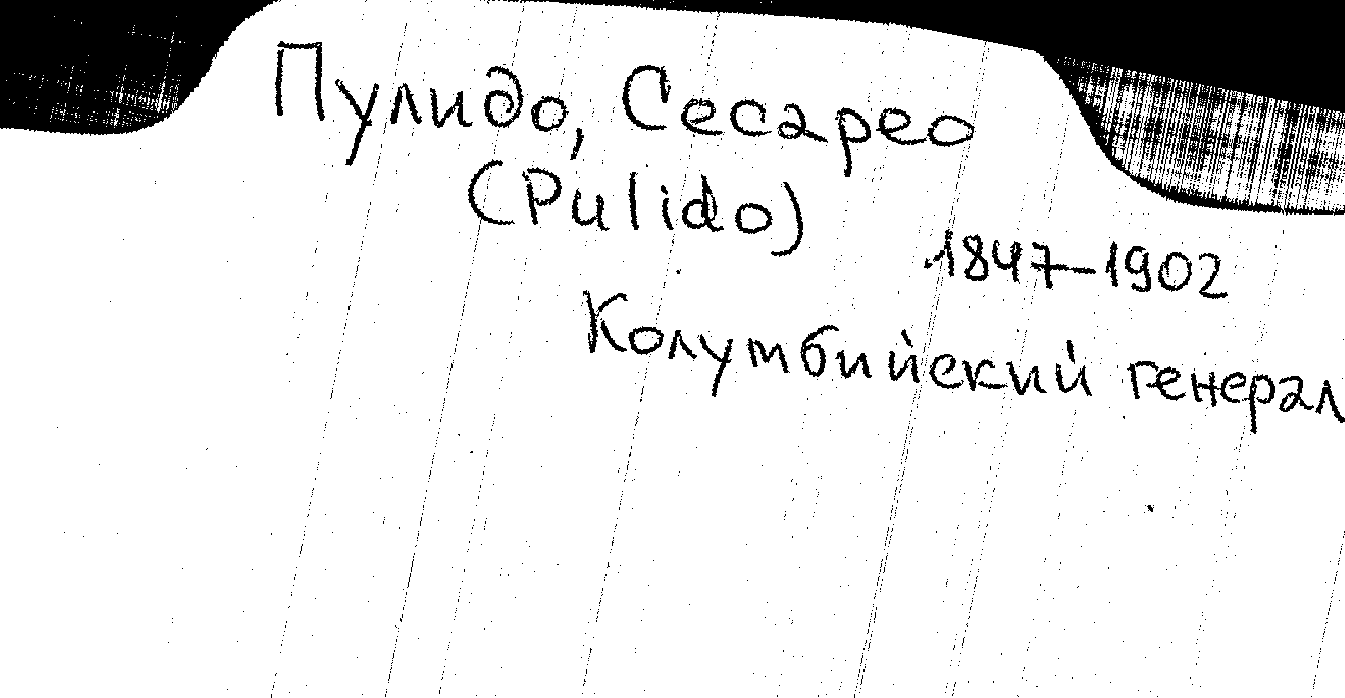 Пулидо, Сесарео
(Pulido)
1847-1902
Колумбийский генерал